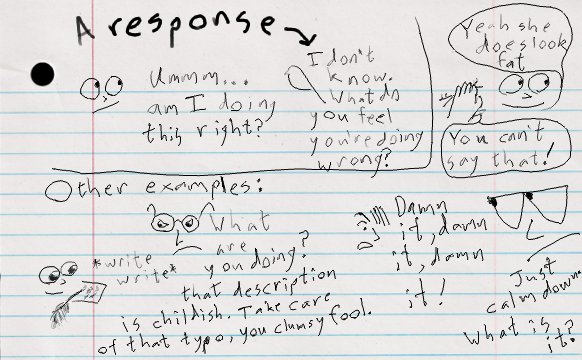 A response
Ummm...
am I doing
this right?
I don't
know.
What do
you feel
you're doing
wrong?
Yeah she
does look
fat
You can't
say that!
Other examples:
*write
write*
What
are
you doing?
that description
is childish. Take care
of that typo, you clumsy fool.
Damn
it, damn
it, damn
it!
Just
calm down.
What is
it?